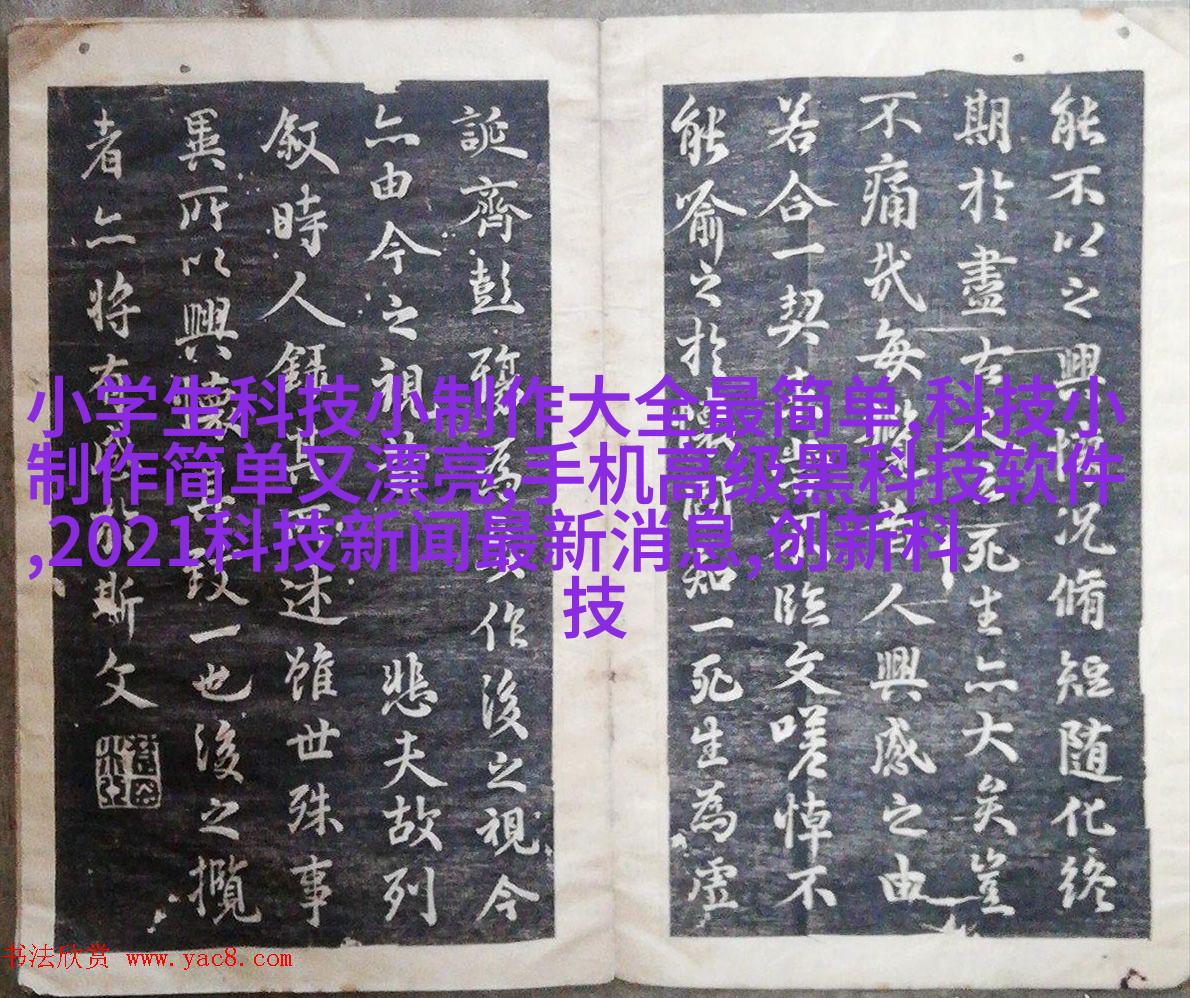 能不以之興懷況脩短随化終
期於盡古人云死生亦大矣豈
不痛哉每攬昔人興感之由
若合一契未嘗不臨文嗟悼不
能喻之於懷固知一死生為虛
誕齊彭殤為妄作後之視今
亦由今之視昔悲夫故列
敘時人録其所述雖世殊事
異所以興懷其致一也後之攬
者亦将有感於斯文
小学生科技小制作大全最简单,科技小
制作简单又漂亮,手机高级黑科技软件
,2021科技新闻最新消息,创新科
技
书法欣赏 www.yac8.com